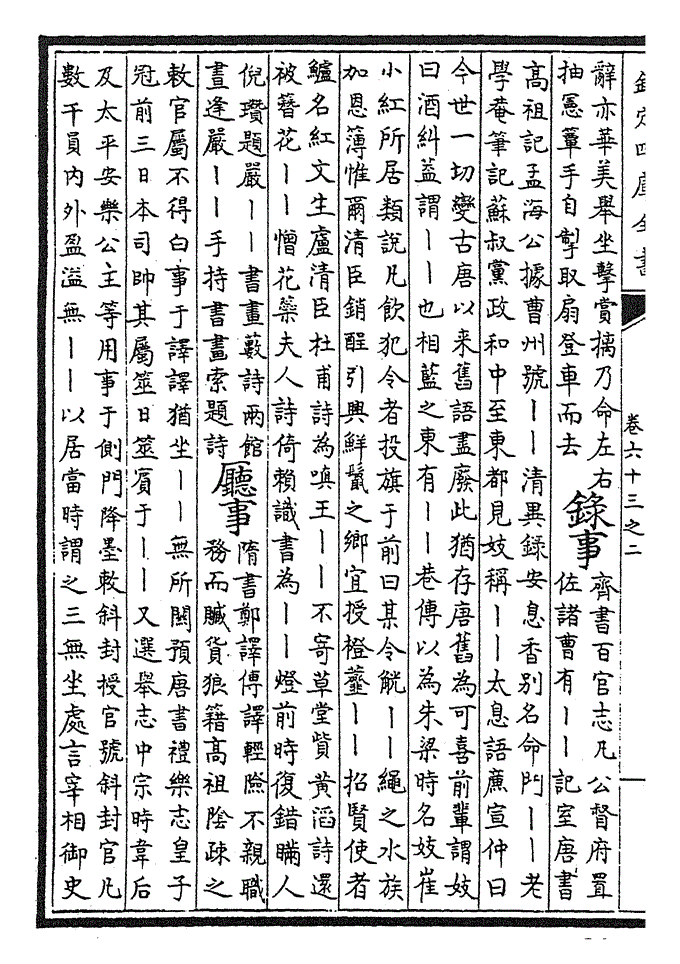 欽定四庫全書
卷六十三之二
辭亦華美舉坐擊賞摛乃命左右
抽憲簟手自掣取扇登車而去
錄事
齊書百官志凡公督府置
佐諸曹有——記室唐書
高祖記孟海公據曹州號——清異錄安息香別名命門——老
學菴筆記蘇叔黨政和中至東都見妓稱——太息語廉宣仲曰
今世一切變古唐以来舊語盡廢此猶存唐舊為可喜前輩謂妓
曰酒糾葢謂——也相藍之東有——巷傳以為朱梁時名妓崔
小紅所居類說凡飲犯令者投旗于前曰某令觥——繩之水族
加恩簿惟爾清臣銷酲引興鮮鬣之鄉宜授橙虀——招賢使者
鱸名紅文生盧清臣杜甫詩為嗔王——不寄草堂貲黄滔詩還
被簪花——憎花蘂夫人詩倚賴識書為——燈前時復錯瞞人
倪瓚題嚴——書畫藪詩兩館
晝逢嚴——手持書畫索題詩
廳事
隋書鄭譯傳譯輕險不親職
務而贓貨狼籍高祖陰疎之
敕官屬不得白事于譯譯猶坐——無所關預唐書禮樂志皇子
冠前三日本司帥其屬筮日筮賓于——又選舉志中宗時韋后
及太平安樂公主等用事于側門降墨敕斜封授官號斜封官凡
數千員內外盈溢無——以居當時謂之三無坐處言宰相御史